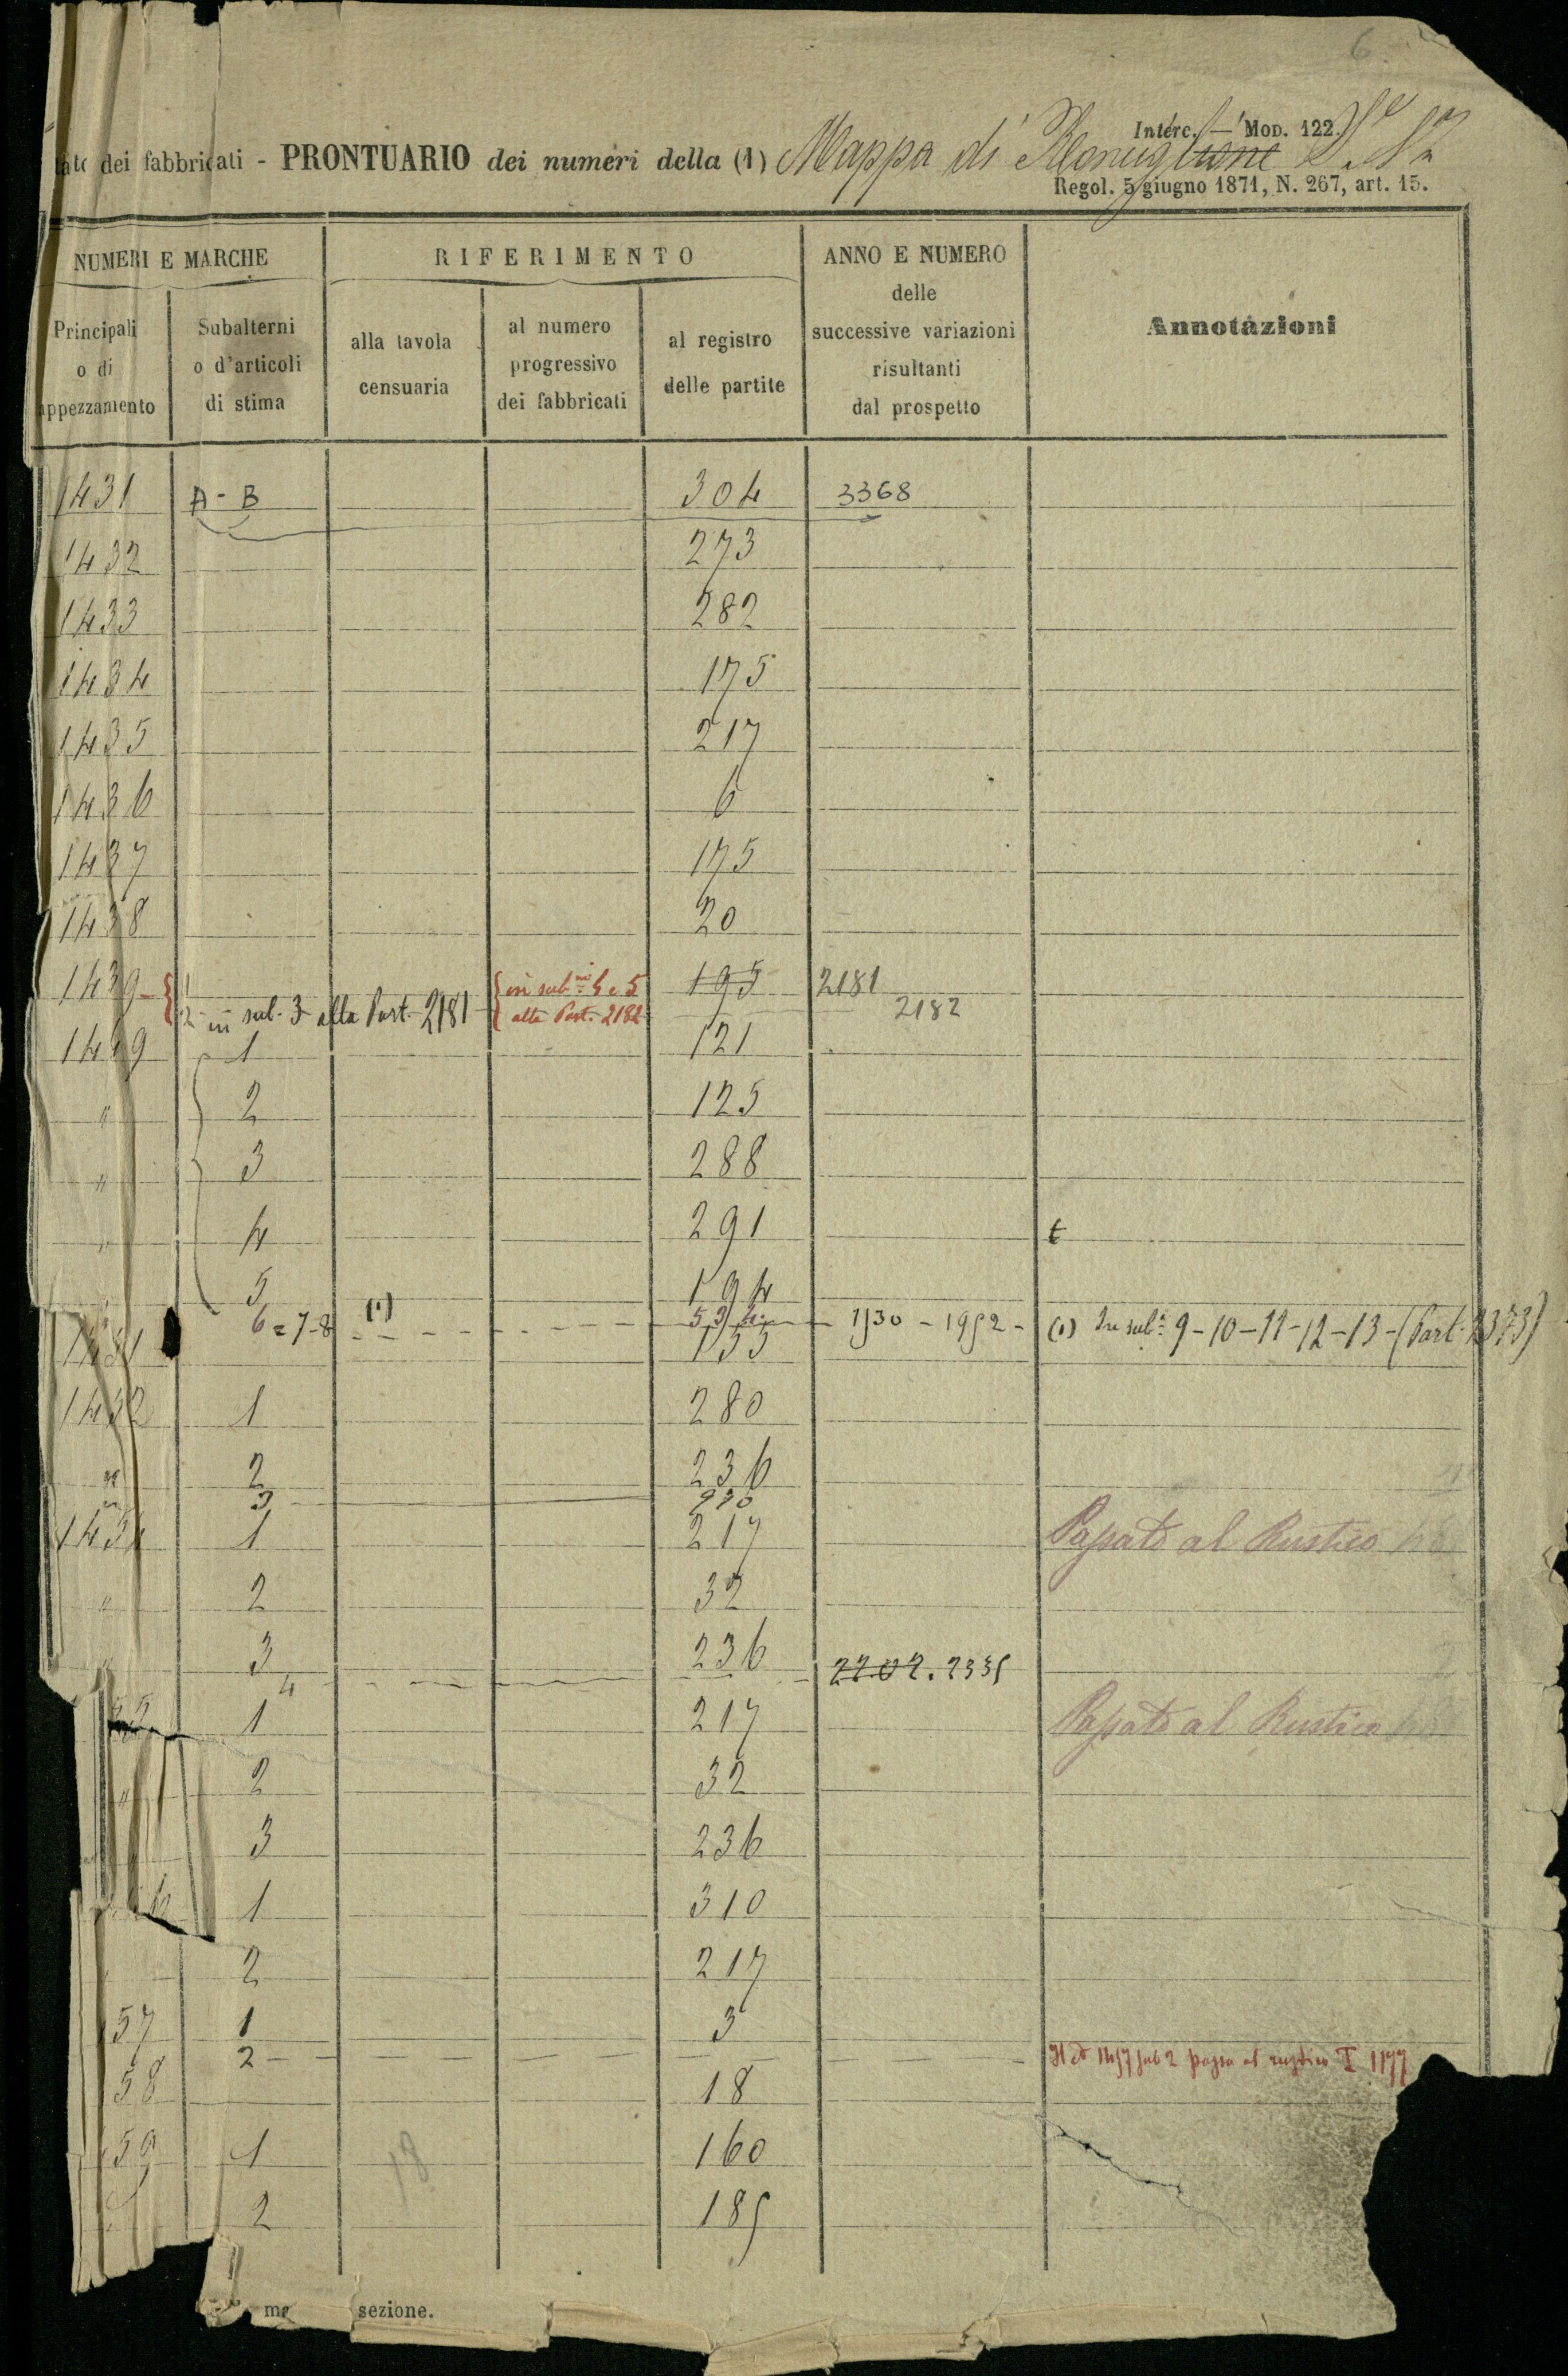 6
Interc. — Mod. 122.
dei fabbricati - PRONTUARIO dei numeri della (1) Mappa di Ronciglione
Regol. 5 giugno 1871, N. 267, art. 15.
NUMERI E MARCHE
RIFERIMENTO
ANNO E NUMERO
delle
successive variazioni
risultanti
dal prospetto
Annotazioni
Principali
o di
appezzamento
Subalterni
o d'articoli
di stima
alla tavola
censuaria
al numero
progressivo
dei fabbricati
al registro
delle partite
1431 A - B 304 3368
1432 273
1433 282
1434 175
1435 217
1436 6
1437 175
1438 20
1439 - { 1 { in sub.ni 4 e 5 195 2181
2 in sub. 3 alla Part. 2181 alla Part. 2182 2182
1449 1 121
" 2 125
" 3 288
" 4 291
" 5 194
6 = 7 - 8 (1) 1930 - 1952 - (1) In sub.i 9 - 10 - 11 - 12 - 13 - (Part. 2373)
1451 155
1452 1 280
" 2 236
" 3
1454 1 217 Passato al Rustico
" 2 32
" 3 236
4 2335
1 217 Passato al Rustico
" 2 32
3 236
1 310
2 217
57 1 3
2 Il n° 1457 sub 2 passa al rustico
58 18
59 1 160
18
2 185
sezione.